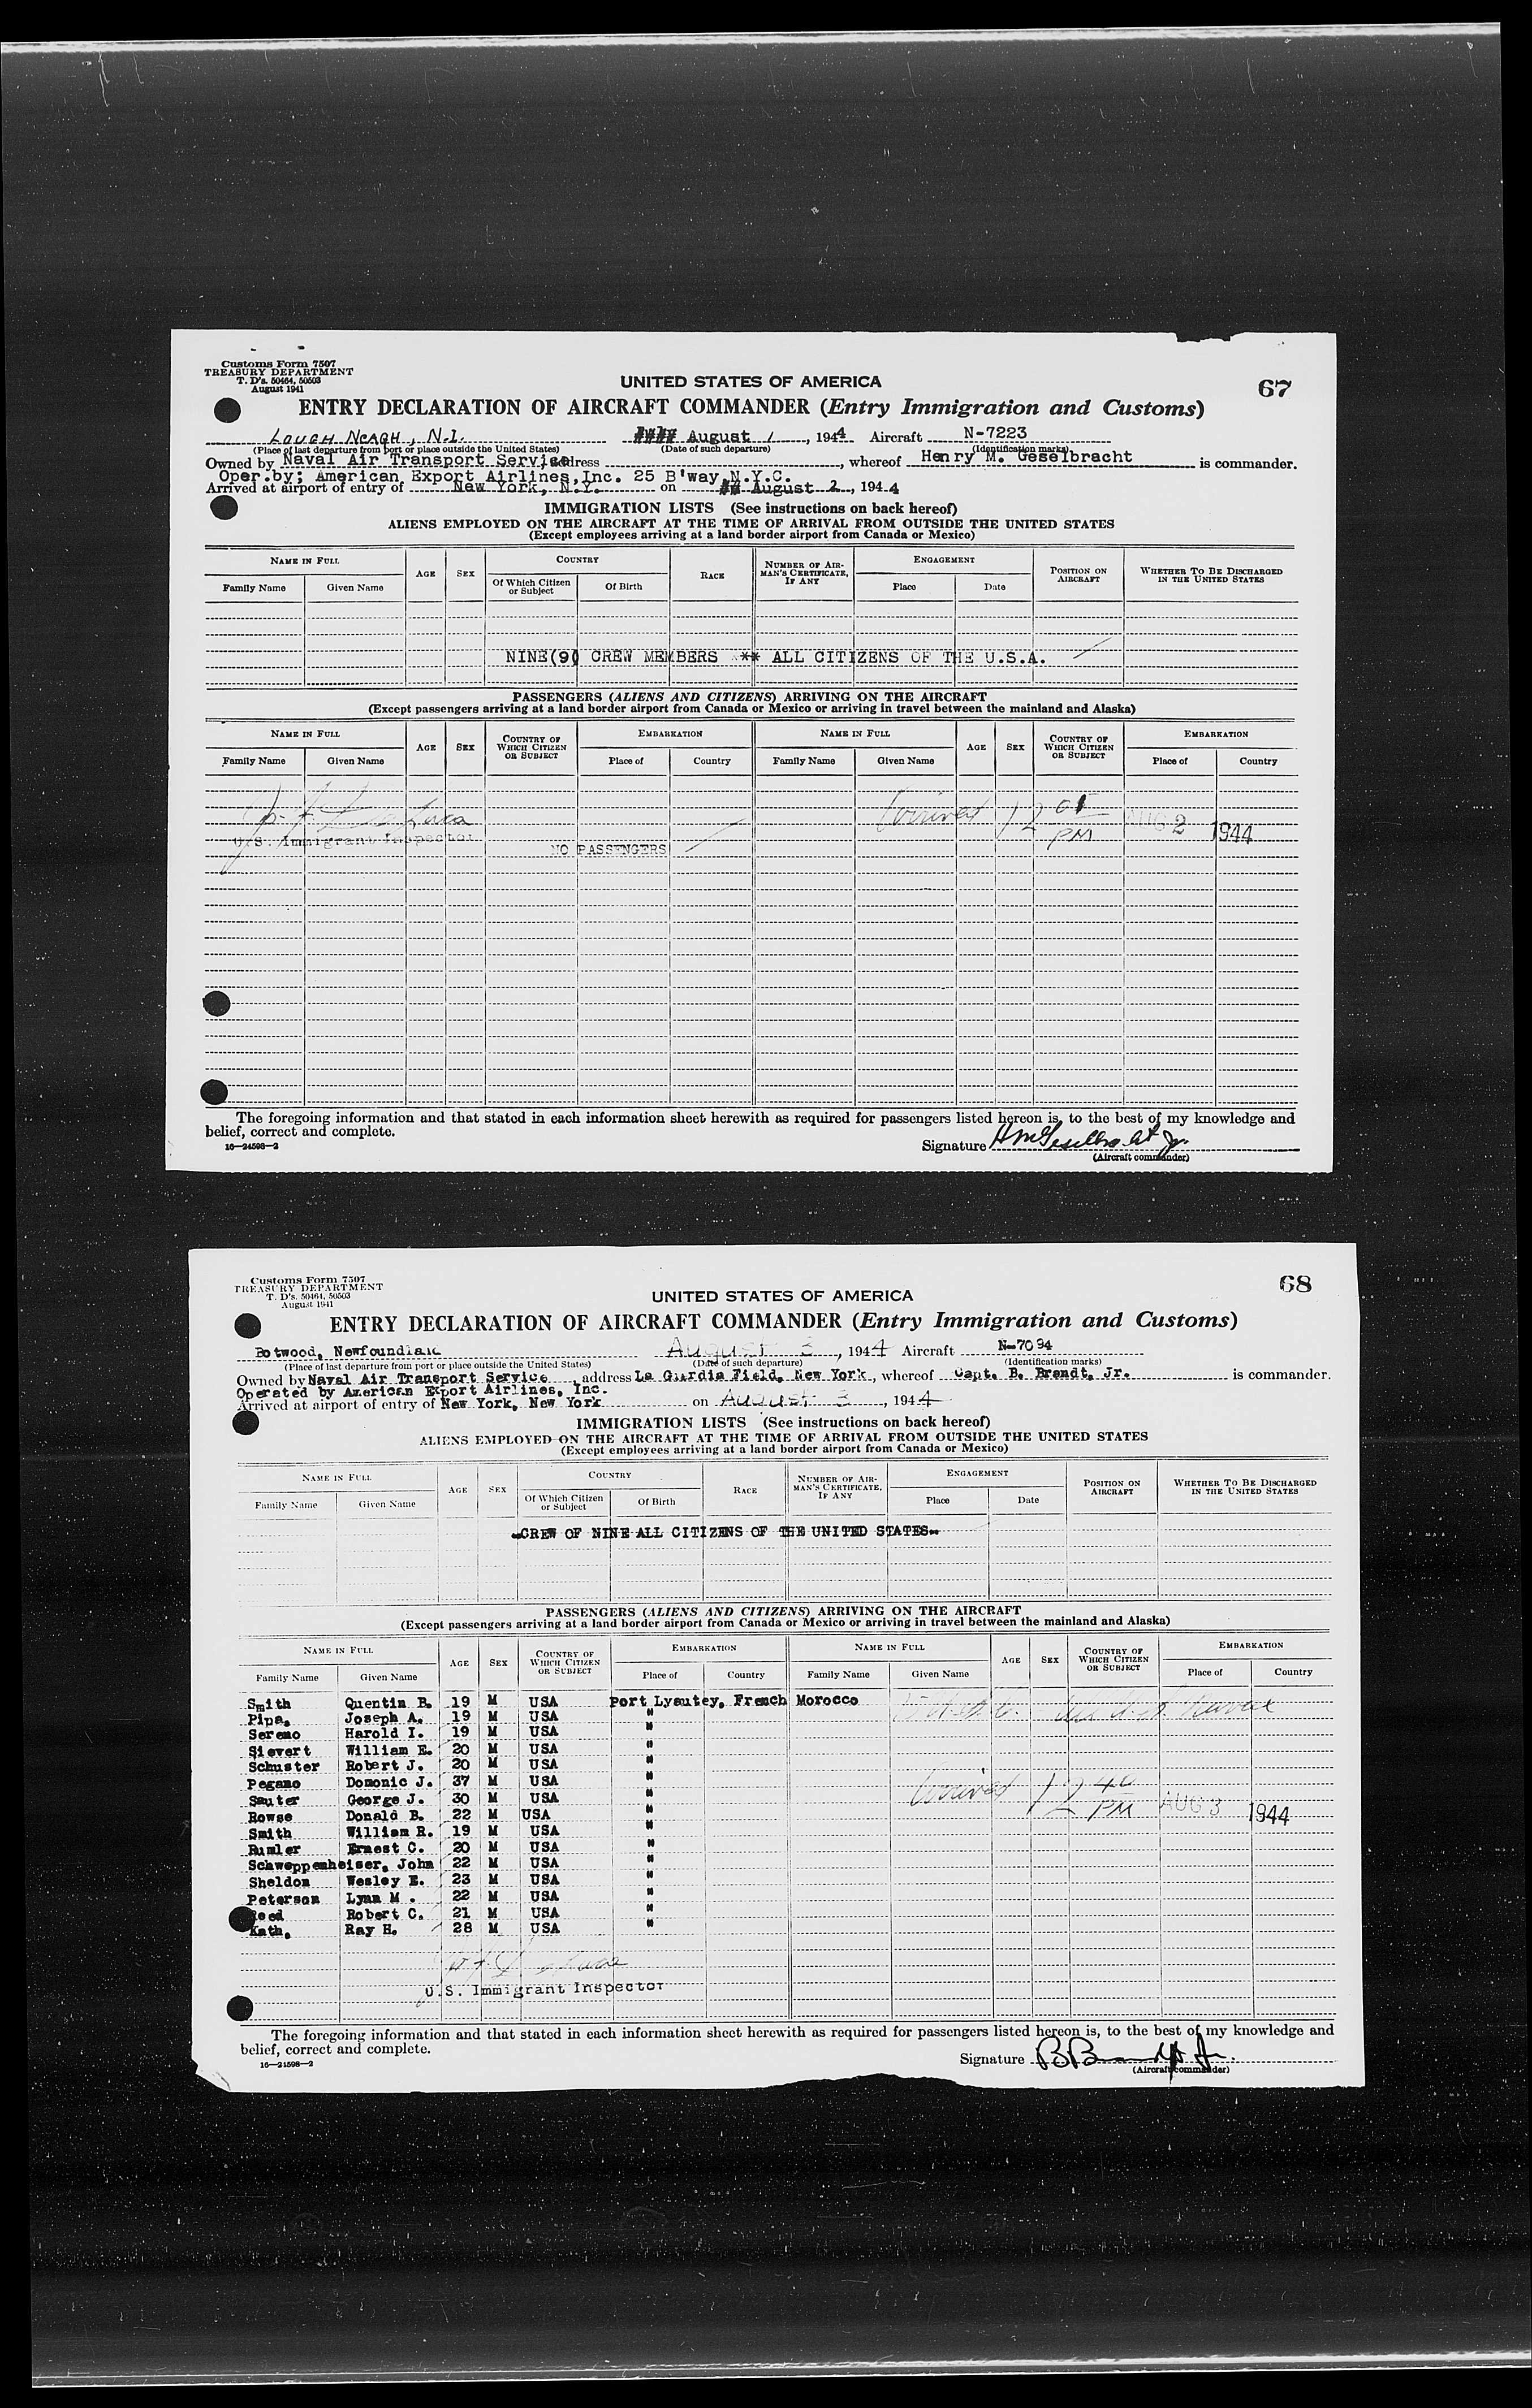 Customs Form 7507
TREASURY DEPARTMENT
T. D's. 50464, 50503
August 1941
UNITED STATES OF AMERICA
67
ENTRY DECLARATION OF AIRCRAFT COMMANDER (Entry Immigration and Customs)
LOUGH NEAGH, N.I. August 1, 1944 Aircraft N-7223
(Place of last departure from port or place outside the United States) (Date of such departure) (Identification marks)
Owned by Naval Air Transport Service, address , whereof Henry M. Geselbracht is commander.
Oper.by; American Export Airlines,Inc. 25 B'way,N.Y.C.
Arrived at airport of entry of New York, N.Y. on August 2, 1944
IMMIGRATION LISTS (See instructions on back hereof)
ALIENS EMPLOYED ON THE AIRCRAFT AT THE TIME OF ARRIVAL FROM OUTSIDE THE UNITED STATES
(Except employees arriving at a land border airport from Canada or Mexico)
NAME IN FULL AGE SEX COUNTRY RACE NUMBER OF AIRMAN'S CERTIFICATE, IF ANY ENGAGEMENT POSITION ON AIRCRAFT WHETHER TO BE DISCHARGED IN THE UNITED STATES
Family Name Given Name Of Which Citizen or Subject Of Birth Place Date
NINE(9) CREW MEMBERS ** ALL CITIZENS OF THE U.S.A.
PASSENGERS (ALIENS AND CITIZENS) ARRIVING ON THE AIRCRAFT
(Except passengers arriving at a land border airport from Canada or Mexico or arriving in travel between the mainland and Alaska)
NAME IN FULL AGE SEX COUNTRY OF WHICH CITIZEN OR SUBJECT EMBARKATION NAME IN FULL AGE SEX COUNTRY OF WHICH CITIZEN OR SUBJECT EMBARKATION
Family Name Given Name Place of Country Family Name Given Name Place of Country
Arrived 12 05 PM AUG 2 1944
U.S. Immigrant Inspector
NO PASSENGERS
The foregoing information and that stated in each information sheet herewith as required for passengers listed hereon is, to the best of my knowledge and
belief, correct and complete.
16—24598-2
Signature HMGeselbracht Jr.
(Aircraft commander)
Customs Form 7507
TREASURY DEPARTMENT
T. D's. 50464, 50503
August 1941
UNITED STATES OF AMERICA
68
ENTRY DECLARATION OF AIRCRAFT COMMANDER (Entry Immigration and Customs)
Botwood, Newfoundland August 3, 1944 Aircraft N-7094
(Place of last departure from port or place outside the United States) (Date of such departure) (Identification marks)
Owned by Naval Air Transport Service, address La Guardia Field, New York, whereof Capt. B. Brandt, Jr. is commander.
Operated by American Export Airlines, Inc.
Arrived at airport of entry of New York, New York on August 3, 1944
IMMIGRATION LISTS (See instructions on back hereof)
ALIENS EMPLOYED ON THE AIRCRAFT AT THE TIME OF ARRIVAL FROM OUTSIDE THE UNITED STATES
(Except employees arriving at a land border airport from Canada or Mexico)
NAME IN FULL AGE SEX COUNTRY RACE NUMBER OF AIRMAN'S CERTIFICATE, IF ANY ENGAGEMENT POSITION ON AIRCRAFT WHETHER TO BE DISCHARGED IN THE UNITED STATES
Family Name Given Name Of Which Citizen or Subject Of Birth Place Date
CREW OF NINE ALL CITIZENS OF THE UNITED STATES
PASSENGERS (ALIENS AND CITIZENS) ARRIVING ON THE AIRCRAFT
(Except passengers arriving at a land border airport from Canada or Mexico or arriving in travel between the mainland and Alaska)
NAME IN FULL AGE SEX COUNTRY OF WHICH CITIZEN OR SUBJECT EMBARKATION NAME IN FULL AGE SEX COUNTRY OF WHICH CITIZEN OR SUBJECT EMBARKATION
Family Name Given Name Place of Country Family Name Given Name Place of Country
Smith Quentin B. 19 M USA Port Lyautey, French Morocco
Pipa, Joseph A. 19 M USA "
Sereno Harold I. 19 M USA "
Sievert William E. 20 M USA "
Schuster Robert J. 20 M USA "
Pegano Domonic J. 37 M USA "
Sauter George J. 30 M USA "
Arrived 12 40 PM AUG 3 1944
Rowse Donald B. 22 M USA "
Smith William R. 19 M USA "
Rumler Ernest C. 20 M USA "
Schweppenheiser, John 22 M USA "
Sheldon Wesley E. 23 M USA "
Peterson Lynn M. 22 M USA "
Reed Robert C. 21 M USA "
Kath, Ray H. 28 M USA "
U.S. Immigrant Inspector
The foregoing information and that stated in each information sheet herewith as required for passengers listed hereon is, to the best of my knowledge and
belief, correct and complete.
16—24598-2
Signature B Brandt Jr.
(Aircraft commander)